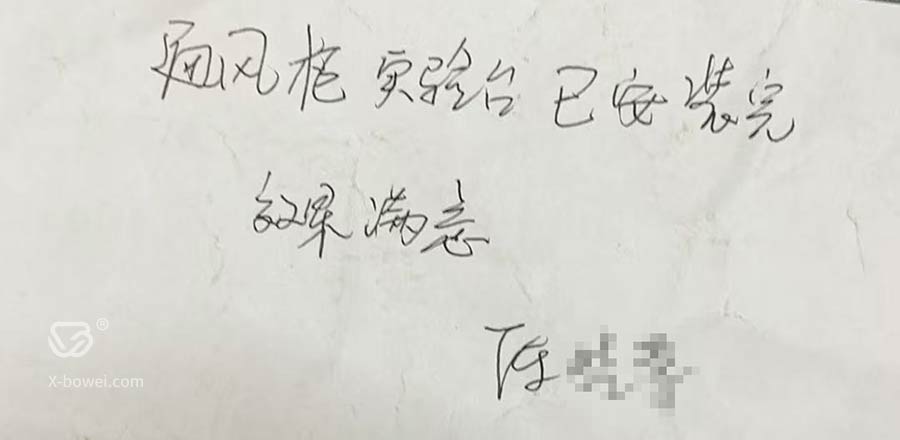 通风柜实验台已安装完
效果满意
陈
®
X-bowei.com